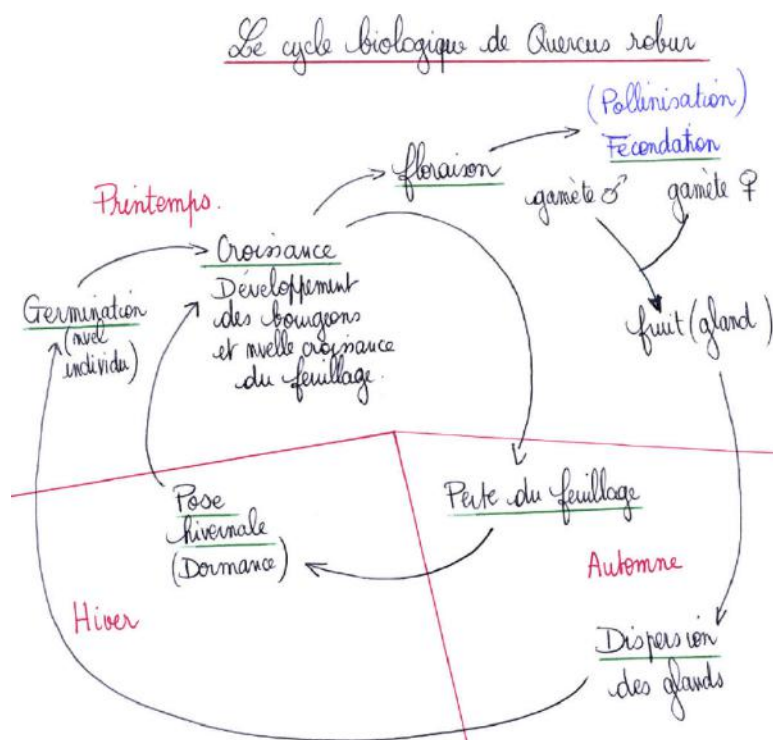 Le cycle biologique de Quercus robur
(Pollinisation)
Fécondation
floraison
gamète ♂
gamète ♀
Printemps.
Croissance
Développement
des bourgeons
et nvelle croissance
du feuillage.
Germination
(nvel
individu)
fruit (gland)
Pose
hivernale
(Dormance)
Perte du feuillage
Automne
Hiver
Dispersion
des glands